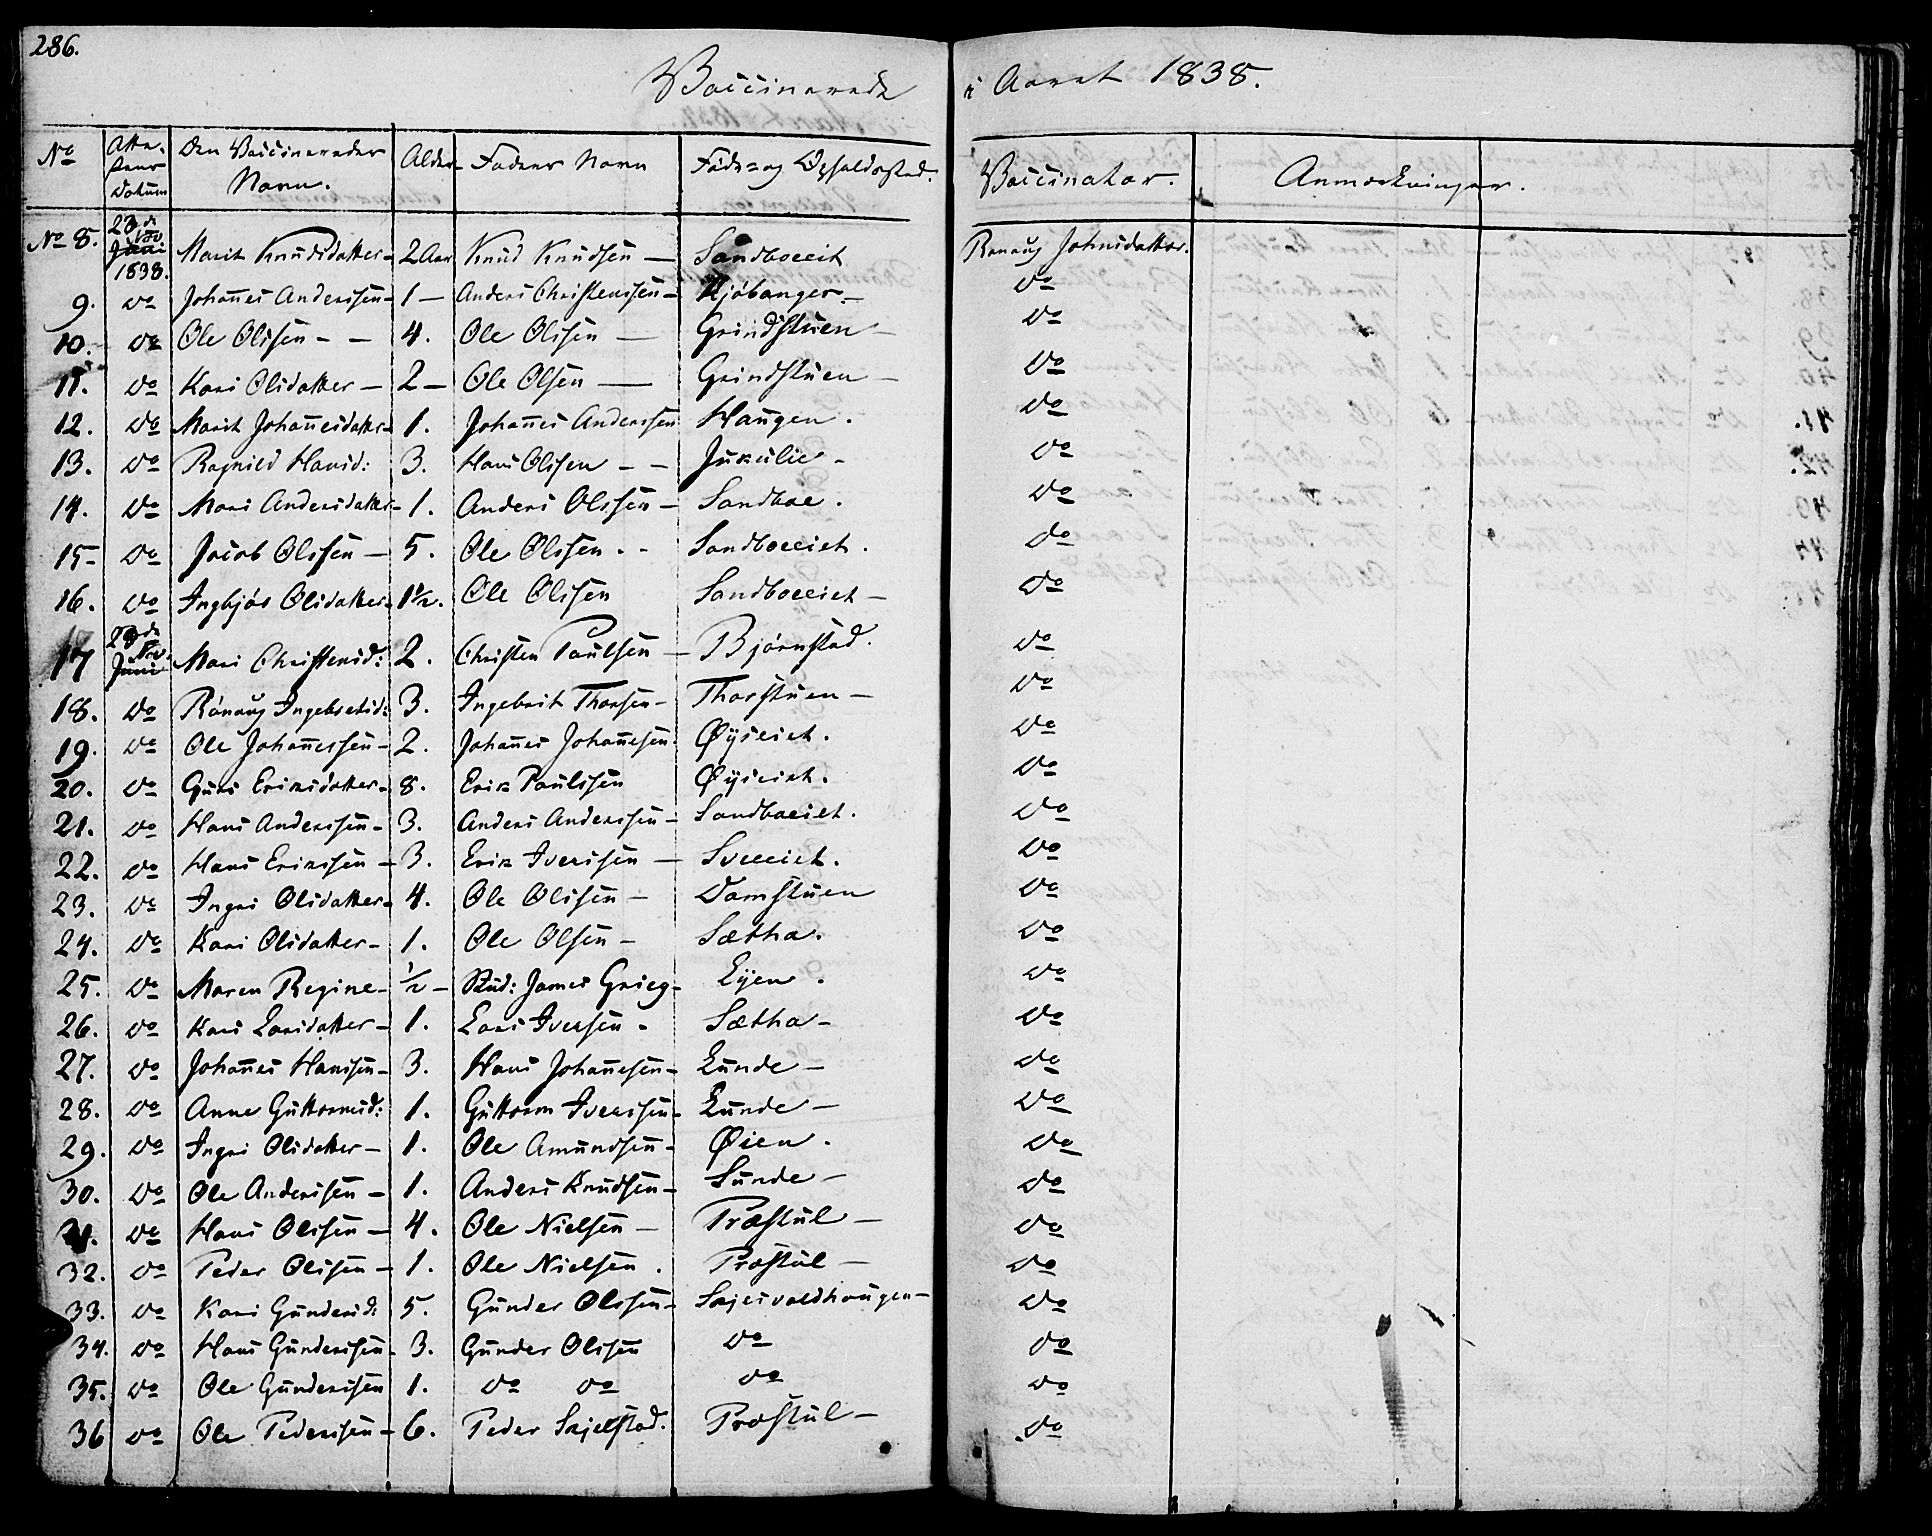 286.
Vaccinerede i Aaret 1838.
No Atte- stens Datum Den Vaccineredes Navn. Alder Faders Navn Føde- og Opholdssted. Vaccinator. Anmærkninger.
No 8. 23de Nov Juni 1838. Marit Knudsdatter - 2 Aar Knud Knudsen — Sandboeeit Ranaug Johnsdatter.
9. do Johañes Anderssen - 1 — Anders Christenssen - Kjøbanger - do
10. do Ole Olssen - - 4. Ole Olssen — Grindstuen - do
11. do Kari Olsdatter - 2 - Ole Olsen — Grindstuen - do
12. do Marit Johañesdatter - 1. Johañes Anderssen Haugen. do
13. do Ragnild Hansd: 3. Hans Olssen - - Jukulie - do
14. do Mari Andersdatter - 1. Anders Olssen - Sandboe. do
15 - do Jacob Olssen - 5. Ole Olssen. - Sandboeeiet. do
16. do Ingbjør Olsdatter - 1 1/2. Ole Olssen Sandboeeiet - do
17 23de Nov. Juni Mari Christensd: 2. Christen Paulsen - Bjørnstad. do
18. do Rønaug Ingebretsd: 3. Ingebrit Thorsen - Thorstuen - do
19. do Ole Johañessen - 2. Johañes Johañesen. Øyseiet. do
20. do Guri Eriksdatter - 8. Erik Paulssen Øyseiet. do
21. do Hans Anderssen - 3. Anders Anderssen - Sandboeiet. do
22. do Hans Erikssen - 3. Erik Iverssen - Sveeiet. do
23. do Ingri Olsdatter - 4. Ole Olssen - Damstuen do
24. do Kari Olsdatter - 1. Ole Olsen - Sætha. do
25. do Maren Regine - 1/2 - Stud: James Grieg - Eyen. do
26. do Kari Larsdatter - 1. Lars Iversen. - Sætha - do
27. do Johañes Hanssen - 3. Hans Johañesen - Lunde - do
28. do Anne Guttormsd: 1. Guttorm Iverssen - Lunde - do
29. do Ingri Olsdatter - 1. Ole Amundsen - Øien. do
30. do Ole Anderssen - 1. Anders Knudsen - Sunde - do
31. do Hans Olssen - 4. Ole Nielsen - Præstul - do
32. do Peder Olssen - 1. Ole Nielsen. Præstul - do
33. do Kari Gundersd: 5. Gunder Olssen - do
34. do Hans Gunderssen - 3. Gunder Olssen do do
35. do Ole Gunderssen 1. do do do do
36 do Ole Pederssen - 6. Peder Skjelstad. Præstul - do